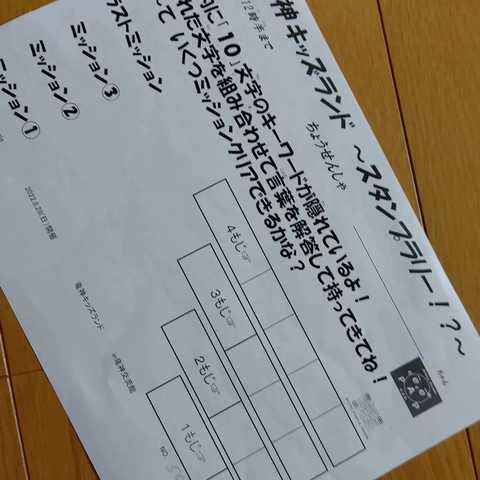 神キッズランド ～スタンプラリー！？～
12時半まで
ちょうせんしゃ
に「１０」文字のキーワードが隠れているよ！
れた文字を組み合わせて言葉を解答して持ってきてね！
て いくつミッションクリアできるかな？
ラストミッション
ミッション③
ミッション②
ミッション①
4もじ☞
3もじ☞
2もじ☞
1もじ☞
NO.
2022.8.28(日) 開催
竜神キッズランド
@竜神交流館